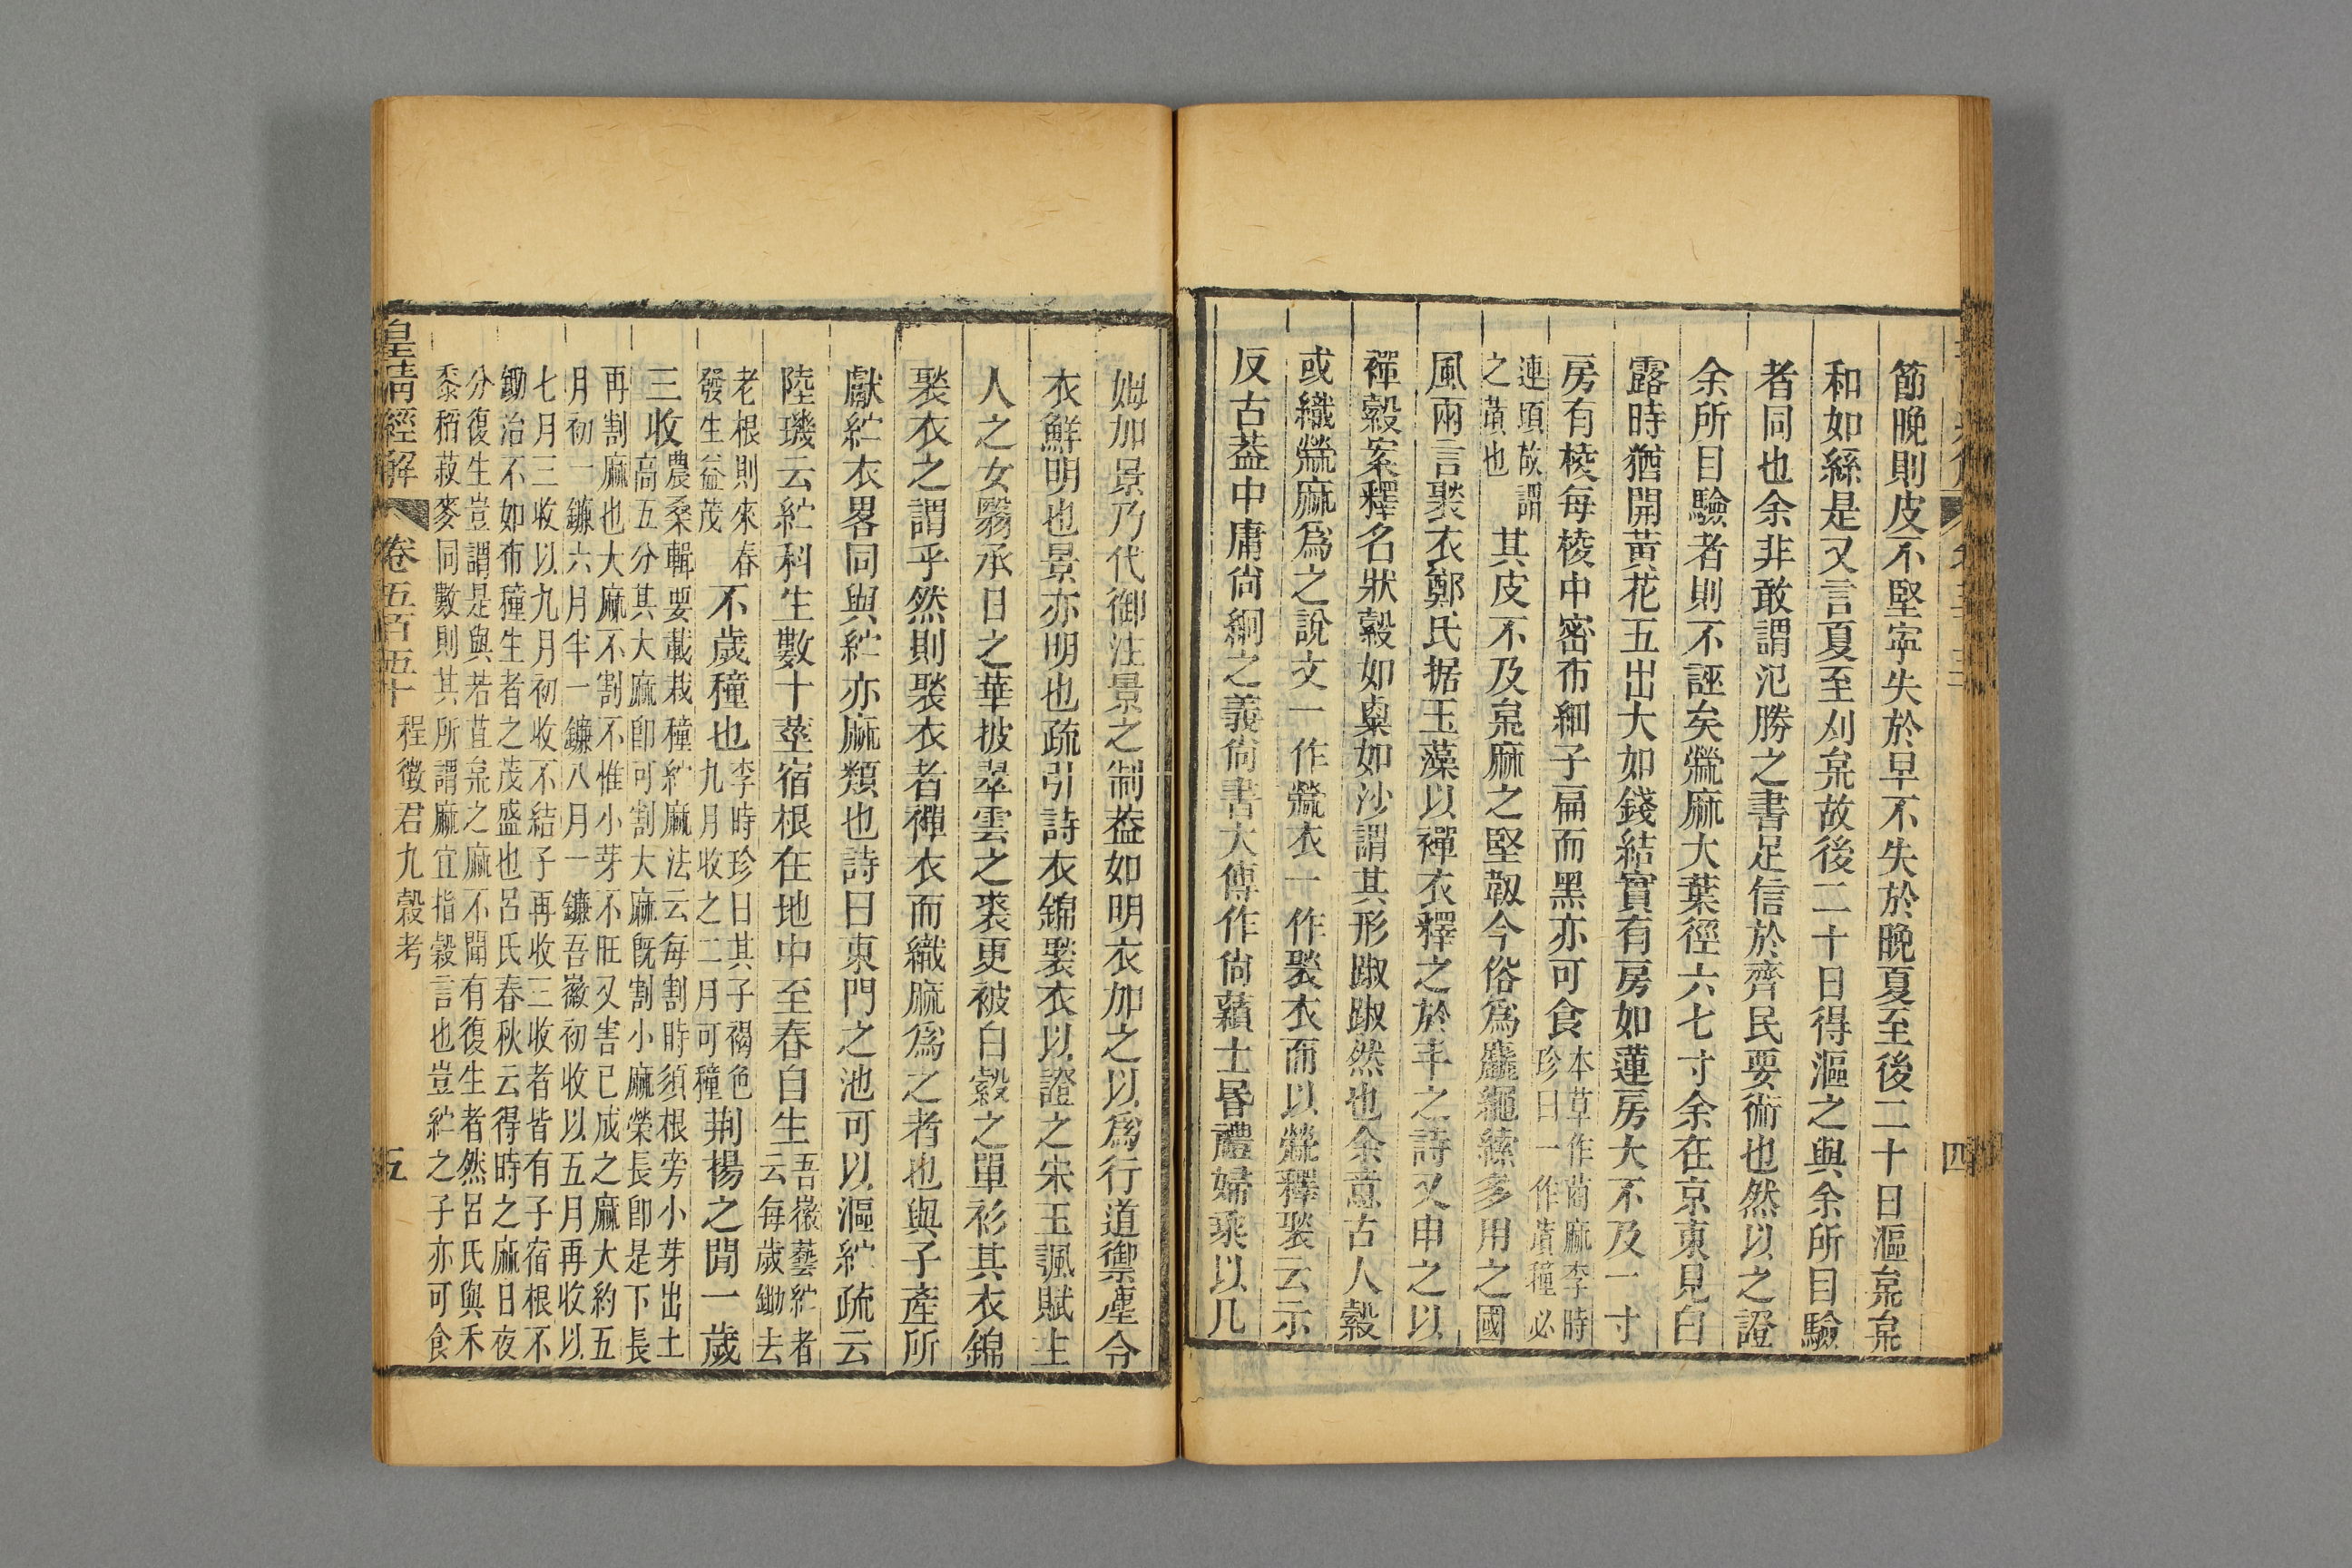 四
節晚則皮不堅寜失於早不失於晚夏至後二十日漚枲枲
和如絲是又言夏至刈枲故後二十日得漚之與余所目驗
者同也余非敢謂氾勝之書足信於齊民要術也然以之證
余所目驗者則不誣矣檾麻大葉徑六七寸余在京東見白
露時猶開黃花五出大如錢結實有房如蓮房大不及一寸
房有棱每棱中密布細子扁而黑亦可食本草作䔛麻李時
珍曰一作䔛種必
連頃故謂
之䔛也其皮不及枲麻之堅韌今俗爲麤繩索多用之國
風兩言褧衣鄭氏据玉藻以襌衣釋之於丰之詩又申之以
襌縠案釋名狀縠如粟如沙謂其形踧踧然也余意古人縠
或織檾麻爲之說文一作檾衣一作褧衣而以檾釋褧云示
反古葢中庸尙絅之義尙書大傳作尙蘏士昬禮婦乘以几
姆加景乃代御注景之制葢如明衣加之以爲行道禦塵令
衣鮮明也景亦明也疏引詩衣錦褧衣以證之宋玉諷賦主
人之女翳承日之華披翠雲之裘更被白縠之單衫其衣錦
褧衣之謂乎然則褧衣者襌衣而織麻爲之者也與子產所
獻紵衣畧同與紵亦麻類也詩曰東門之池可以漚紵疏云
陸璣云紵科生數十莖宿根在地中至春自生吾徽藝紵者
云每歲鋤去
老根則來春
發生益茂不歲穜也李時珍曰其子褐色
九月收之二月可穜荆揚之閒一歲
三收農桑輯要載栽穜紵麻法云每割時須根旁小芽出土
高五分其大麻卽可割大麻旣割小麻榮長卽是下長
再割麻也大麻不割不惟小芽不旺又害已成之麻大約五
月初一鐮六月半一鐮八月一鐮吾徽初收以五月再收以
七月三收以九月初收不結子再收三收者皆有子宿根不
鋤治不如布穜生者之茂盛也呂氏春秋云得時之麻日夜
分復生豈謂是與若苴枲之麻不聞有復生者然呂氏與禾
黍稻菽麥同數則其所謂麻宜指穀言也豈紵之子亦可食
皇清經解 卷五百五十 程徵君九穀考 五